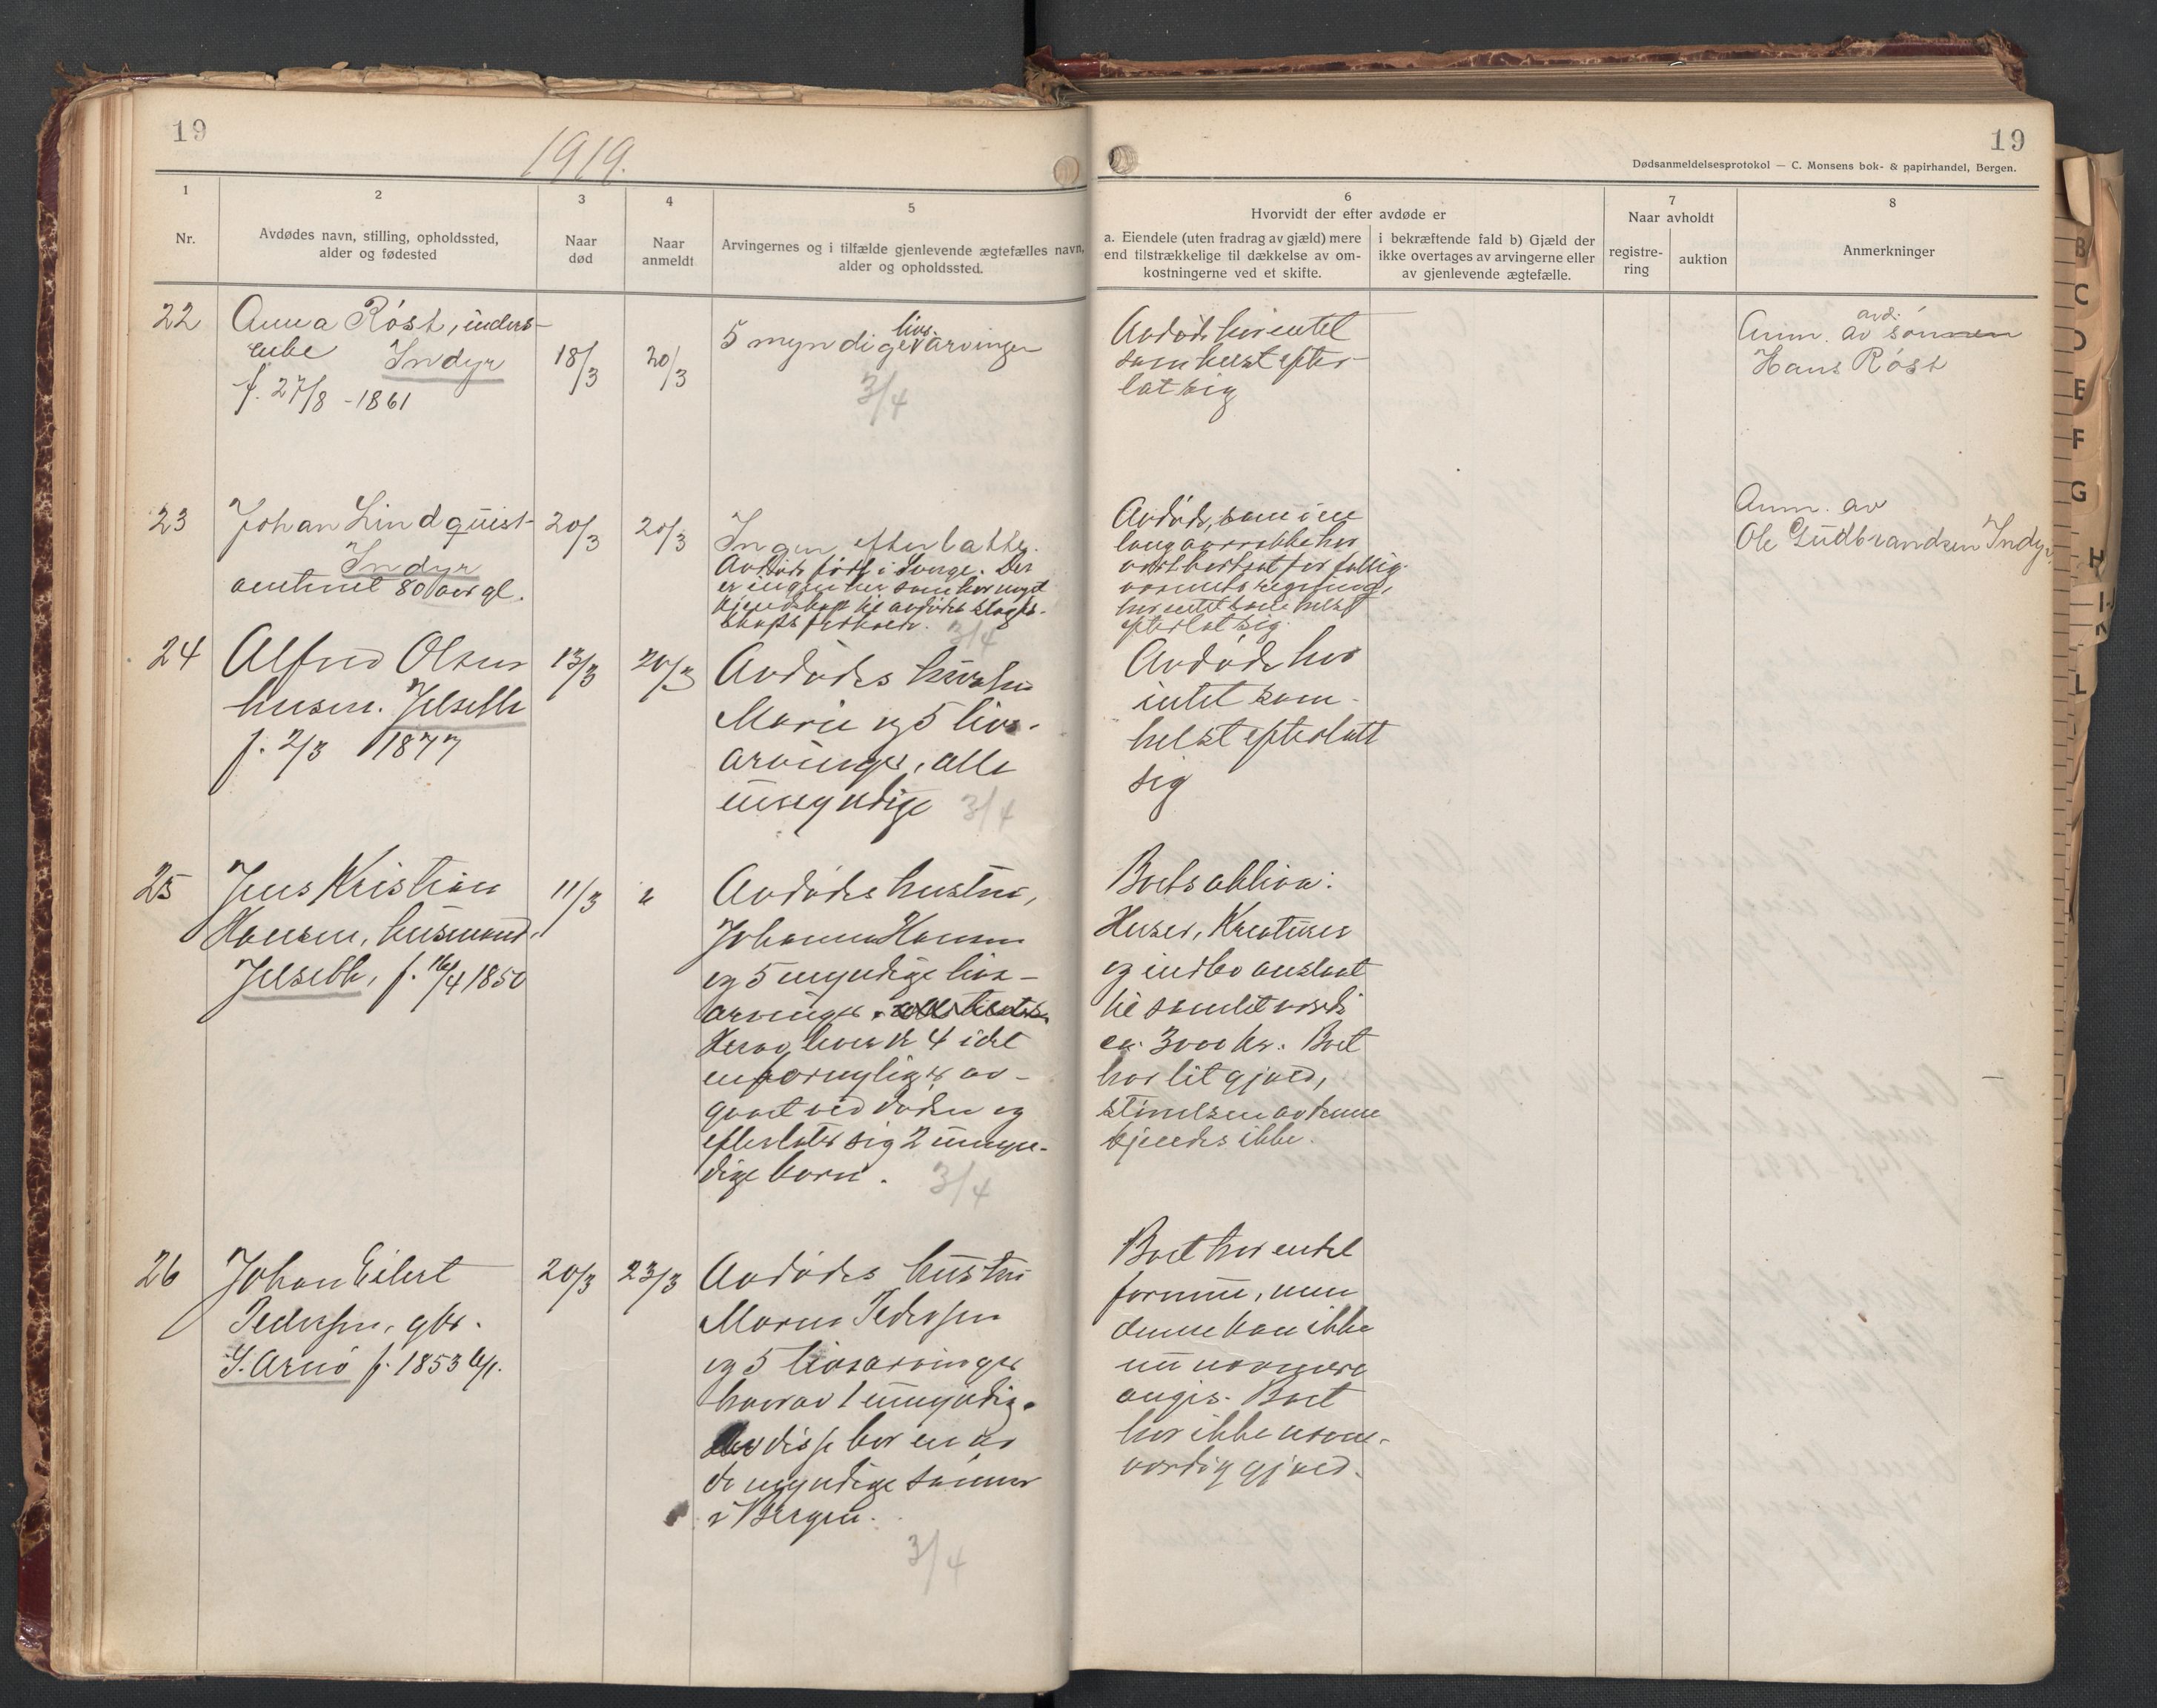 19
1919.
19
Dødsanmeldelsesprotokol — C. Monsens bok- & papirhandel, Bergen.
1
Nr.
2
Avdødes navn, stilling, opholdssted,
alder og fødested
3
Naar
død
4
Naar
anmeldt
5
Arvingernes og i tilfælde gjenlevende ægtefælles navn,
alder og opholdssted.
6
Hvorvidt der efter avdøde er
a. Eiendele (uten fradrag av gjæld) mere
end tilstrækkelige til dækkelse av om-
kostningerne ved et skifte.
i bekræftende fald b) Gjæld der
ikke overtages av arvingerne eller
av gjenlevende ægtefælle.
7
Naar avholdt
registre-
ring
auktion
8
Anmerkninger
22
Anna Röst, inders-
enke Indyr
f. 27/8 - 1861
18/3
20/3
5 myndige livsarvinger
3/4
Avdøde har intet
som helst efter-
lat sig
Anm. av avd. sønnen
Hans Röst
23
Johan Lindquist
Indyr
omtrent 80 aar gl.
20/3
20/3
Ingen efterlatte.
Avdøde født i Sverge. Der
er ingen her som har noget
kjendskap til avdødes slægt-
skaps forhold.
3/4
Avdøde, som i en
lang aarrække har
været bortsat for fattig-
væsenets regning,
har intet som helst
efterlat sig.
Anm. av
Ole Gudbrandsen Indyr
24
Alfred Olsen
husm. Jelseth
f. 2/3 1877
13/3
20/3
Avdødes hustru
Marie og 5 livs-
arvinger, alle
umyndige
3/4
Avdøde har
intet som-
helst efterlatt
sig
25
Jens Kristian
Hansen, husmand.
Jelseth, f. 16/4 1850
11/3
"
Avdødes hustru,
Johanna Hansen
og 5 myndige livs-
arvinger.
Herav lever de 4 idet
en fornylig er av-
gaaet ved døden og
efterlater sig 2 umyn-
dige barn.
3/4
Boets aktiva:
Huser, Kreaturer
og indbo anslaat
til samlet værdi
ca. 3000 kr. Boet
har litt gjæld,
størrelsen av denne
kjendes ikke.
26
Johan Eilert
Pedersen, gbr.
S. Arnø f. 1853 6/1.
20/3
23/3
Avdødes hustru
Maren Pedersen
og 5 livsarvinger
hvorav 1 umyndig.
Av disse bor en av
de myndige sønner
i Bergen.
3/4
Boet har endel
formue, men
denne kan ikke
nu nærmere
angis. Boet
har ikke nævne-
værdig gjæld.
B
C
D
E
F
G
H
L